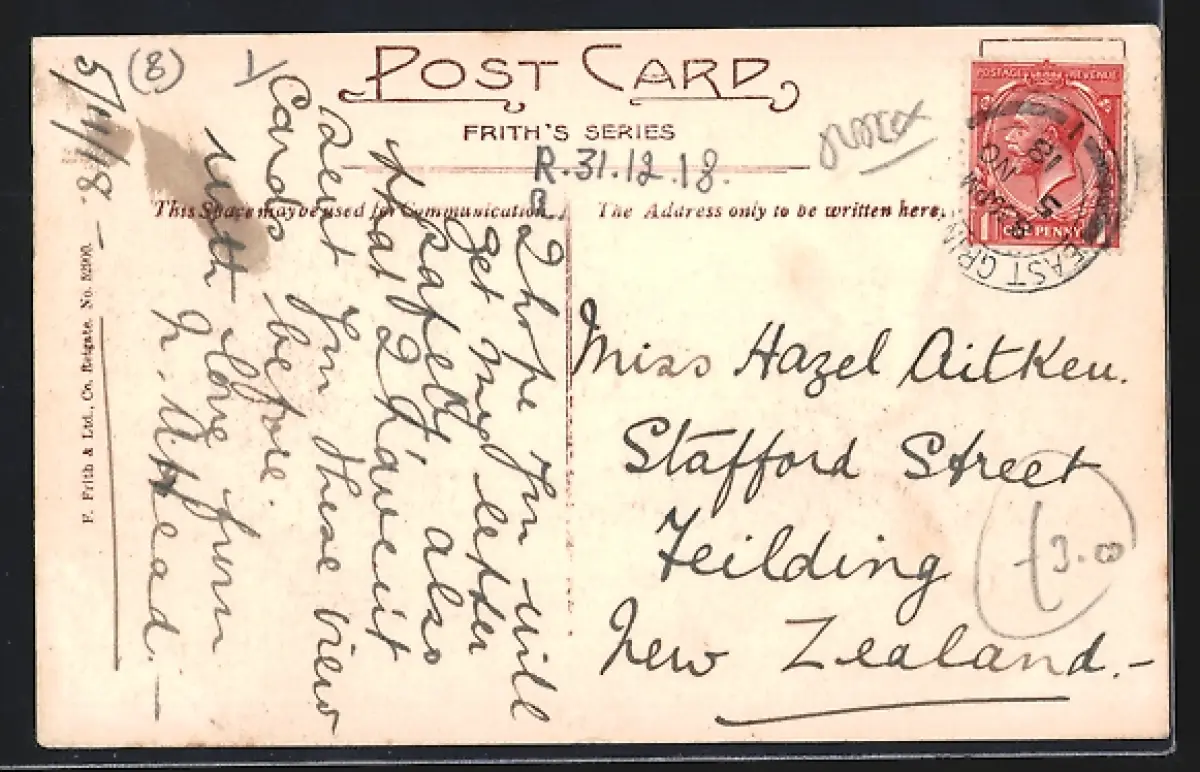 POST CARD
FRITH'S SERIES
R. 31.12.18.
This Space may be used for Communication.
The Address only to be written here.
POSTAGE REVENUE
ONE PENNY
EAST GRIN
5 NO
18
Miss Hazel Aitken.
Stafford Street
Feilding
New Zealand.-
£3.00
(8)
5/11/18.-
I hope you will
get my letter
safely, also
that I haven't
sent you these view
Cards before.
with love from
F. Frith & Ltd., Co. Reigate. No.